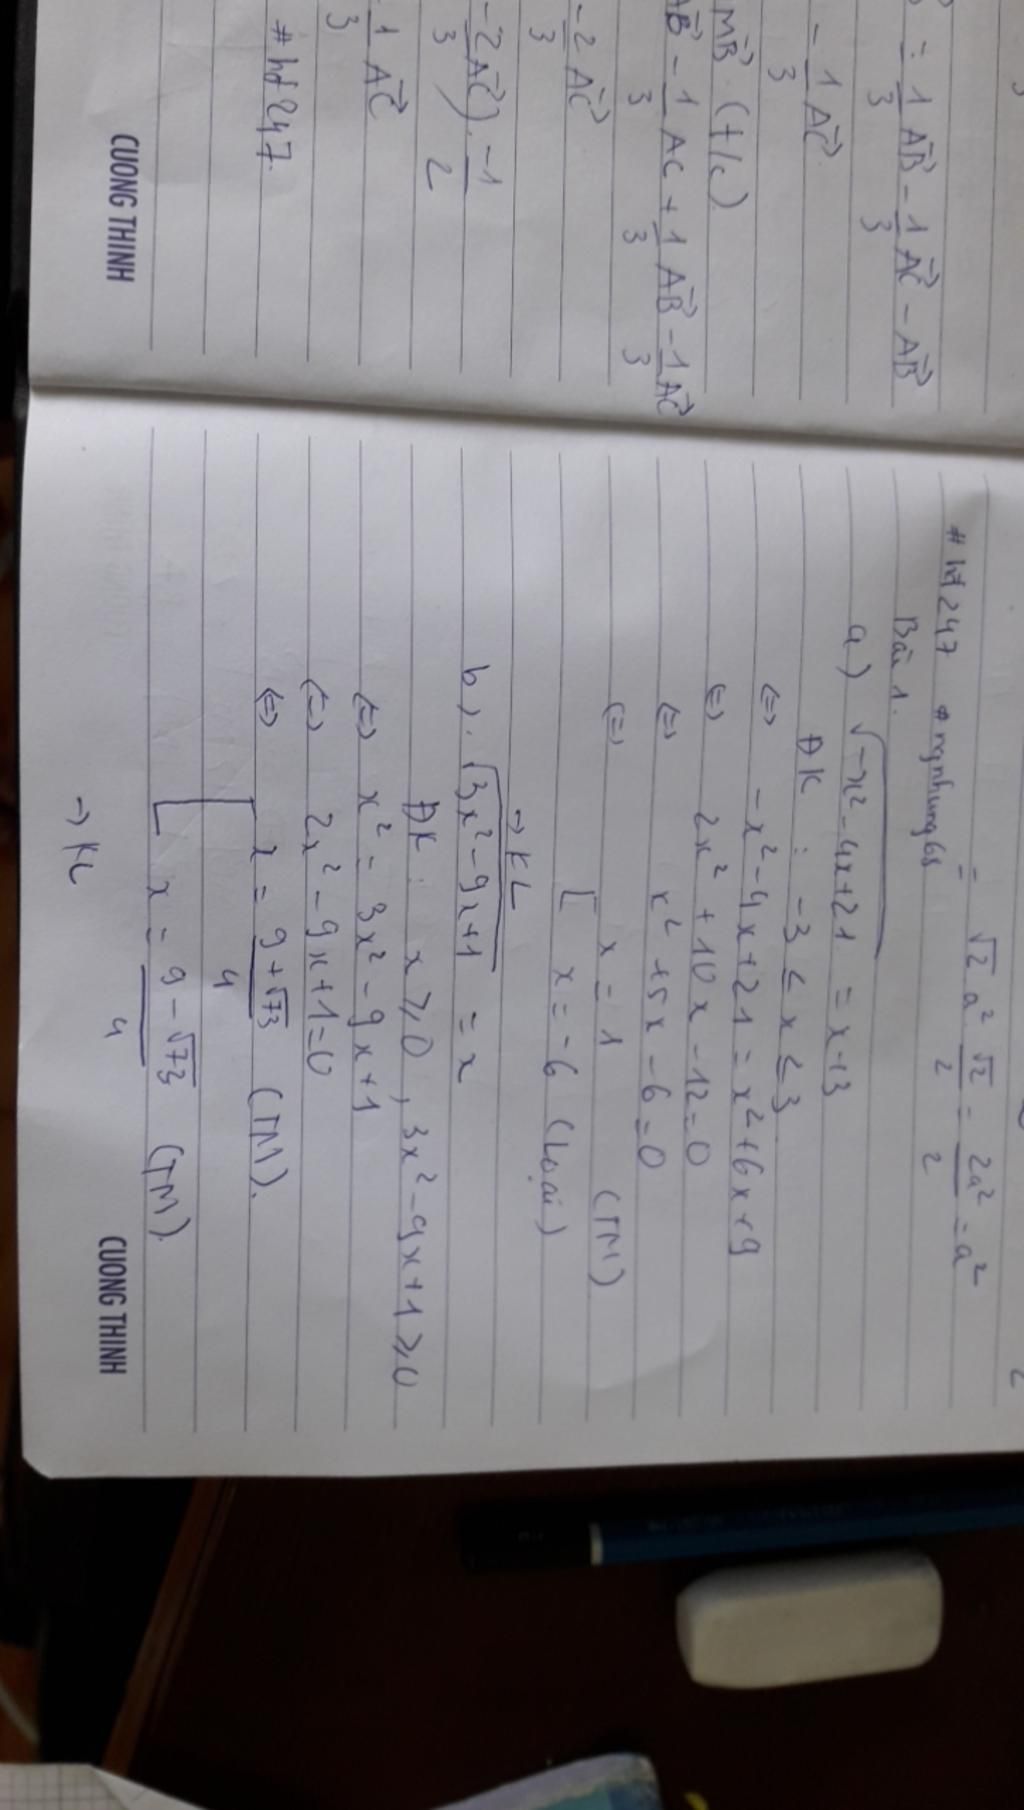 = 1/3 AB→ - 1/3 AC→ - AB→
- 1/3 AC→.
MB→. (t/c)
AB→ - 1/3 AC + 1/3 AB→ - 1/3 AC→
-2/3 AC→
-2/3 AC→). -1/2
1/3 AC→
#hd247.
CUONG THINH
= √2 a² √2/2 = 2a²/2 = a²
#hd247 #ngnhung68
Bài 1.
a) √(-x² - 4x + 21) = x + 3
ĐK: -3 ≤ x ≤ 3
(=) -x² - 4x + 21 = x² + 6x + 9
(=) 2x² + 10x - 12 = 0
(=) x² + 5x - 6 = 0
(=) x = 1 (TM)
[ x = -6 (Loại)
→ KL
b). √(3x² - 9x + 1) = x
ĐK: x ≥ 0, 3x² - 9x + 1 ≥ 0
(=) x² = 3x² - 9x + 1
(=) 2x² - 9x + 1 = 0
(=) [ x = (9 + √73)/4 (TM).
x = (9 - √73)/4 (TM).
→ KL
CUONG THINH